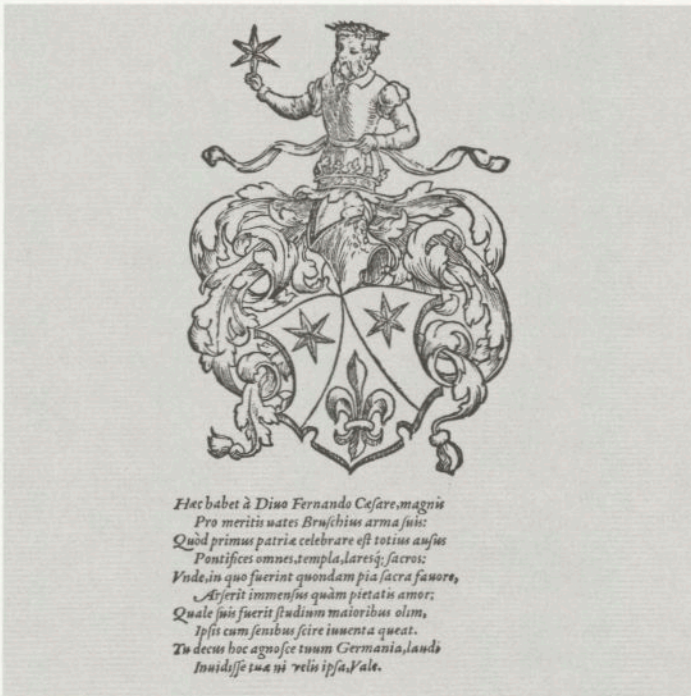 Hæc habet à Diuo Fernando Cæſare, magnis
Pro meritis uates Bruſchius arma ſuis:
Quòd primus patriæ celebrare eſt totius auſus
Pontifices omnes, templa, laresq; ſacros:
Vnde, in quo fuerint quondam pia ſacra fauore,
Arſerit immenſus quàm pietatis amor:
Quale ſuis fuerit ſtudium maioribus olim,
Ipſis cum ſenibus ſcire iuuenta queat.
Tu decus hoc agnoſce tuum Germania, laudi
Inuidiſſe tuæ ni velis ipſa, Vale.